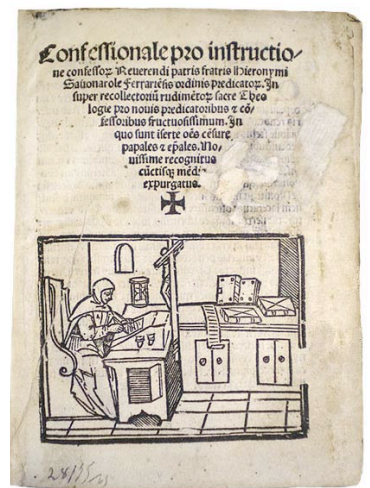 Confessionale pro instructio-
ne confessorꝝ Reuerendi patris fratris Hieronymi
Sauonarole Ferrariẽsis ordinis predicatorꝝ. In
super recollectoriũ rudimẽtorꝝ sacre Theo
logie pro nouis predicatoribus ⁊ cõ-
fessoribus fructuosissimum. In
quo sunt iserte oẽs cẽsure
papales ⁊ ep̃ales. No-
uissime recognitus
cũctisqꝫ mẽdis
expurgatus.